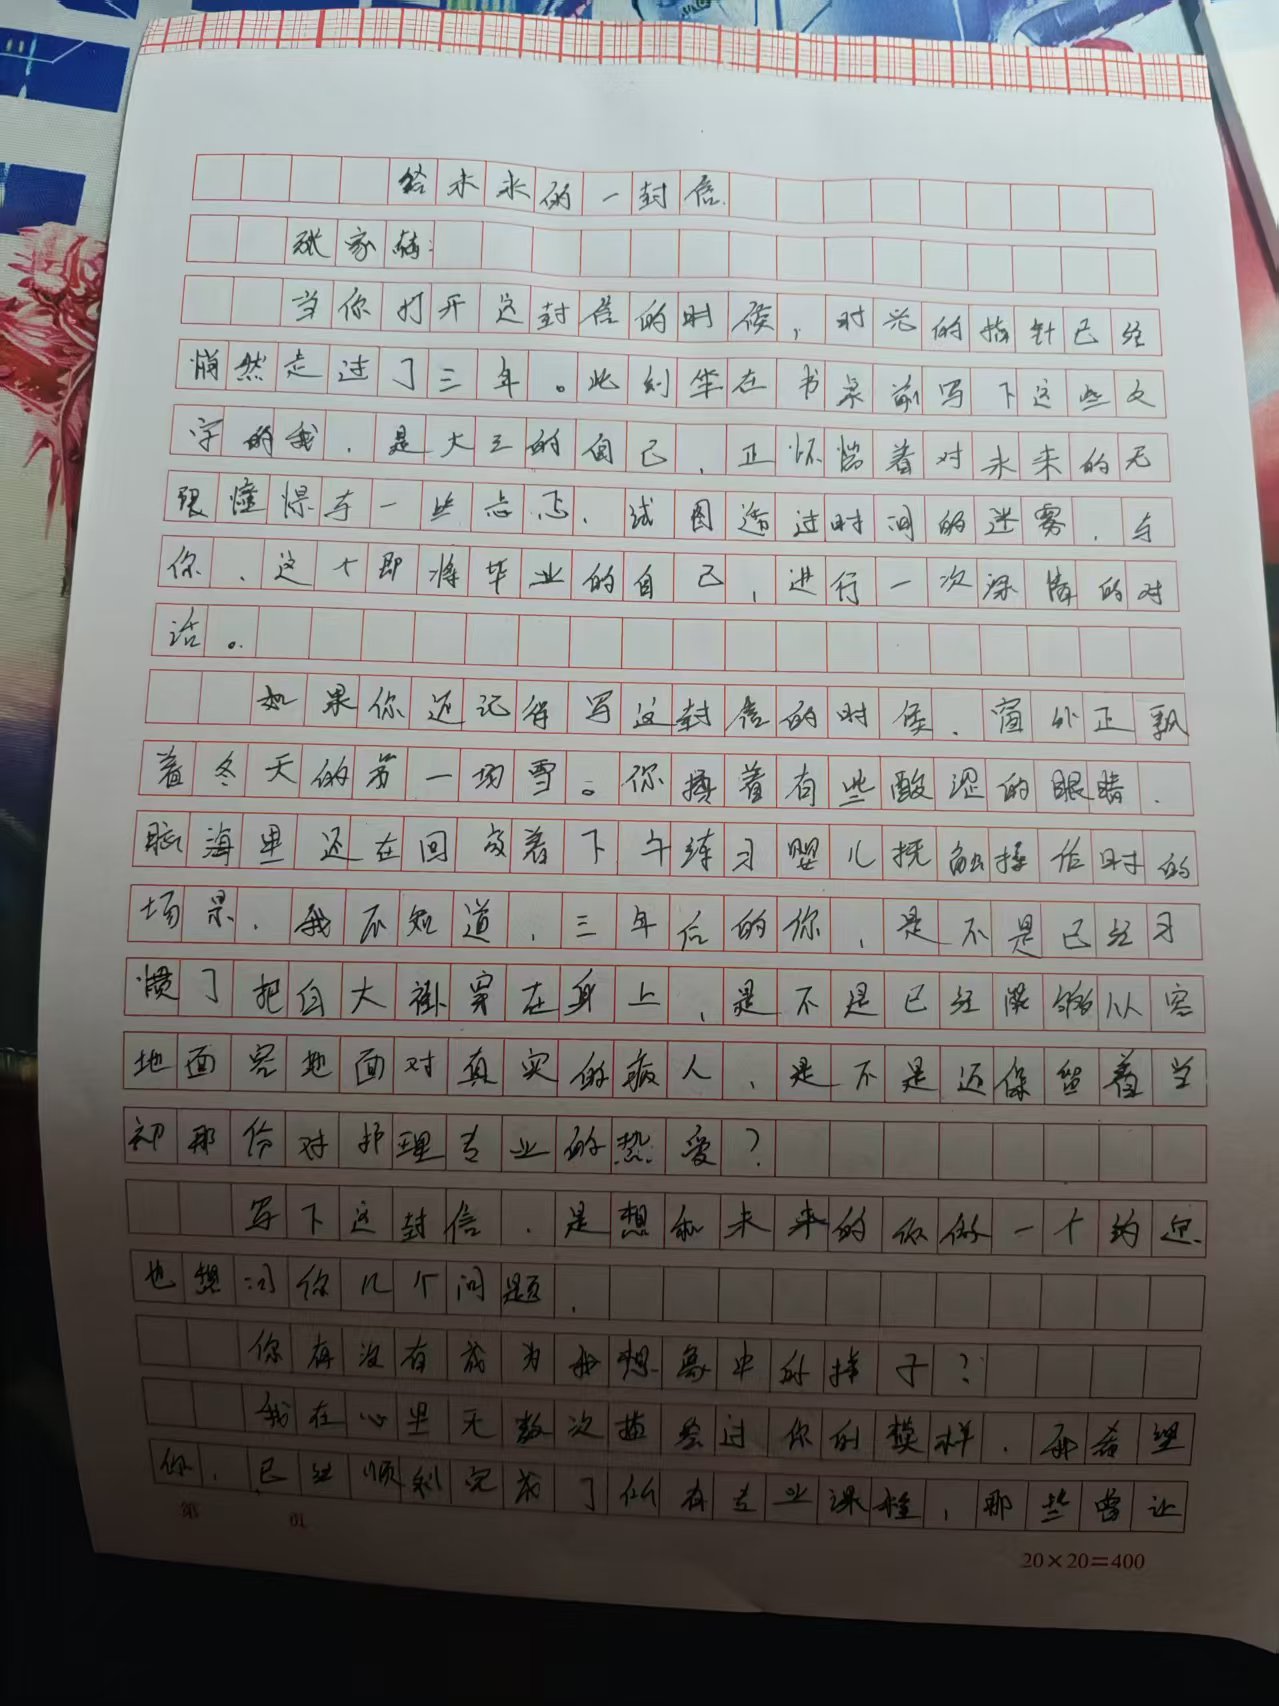 给未来的一封信
张家
当你打开这封信的时候，时光的指针已经
悄然走过了三年。此刻坐在书桌前写下这些文
字的我，是大三的自己，正怀揣着对未来的无
限憧憬与一些忐忑，试图透过时间的迷雾，与
你、这个即将毕业的自己，进行一次深情的对
话。
如果你还记得写这封信的时候，窗外正飘
着冬天的第一场雪。你揉着有些酸涩的眼睛，
脑海里还在回放着下午练习婴儿抚触操作时的
场景，我不知道，三年后的你，是不是已经习
惯了把白大褂穿在身上，是不是已经能够从容
地面容地面对真实的病人，是不是还保留着当
初那份对护理专业的热爱？
写下这封信，是想和未来的你做一个约定
也想问你几个问题，
你有没有成为我想象中的样子？
我在心里无数次描绘过你的模样，我希望
你，已经顺利完成了所有专业课程，那些曾让
第 01
20×20=400